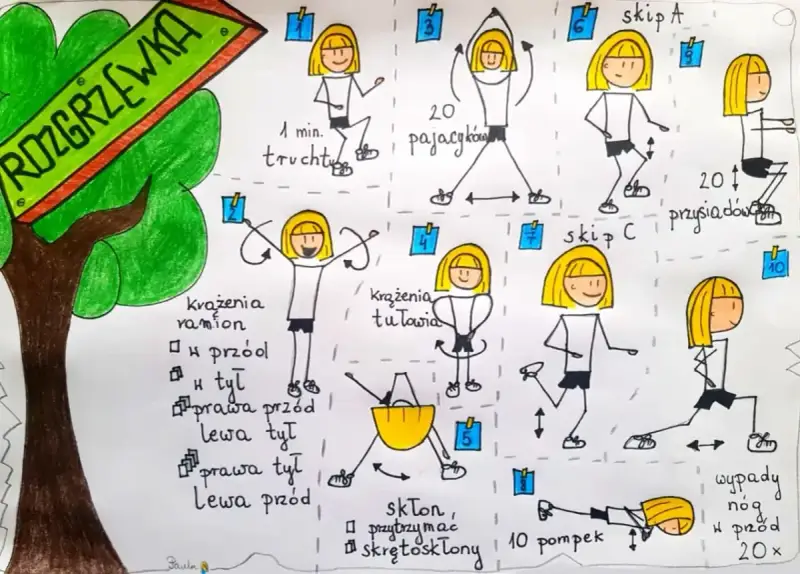 ROZGRZEWKA
1
1 min.
trucht
2
krążenia
ramion
w przód
w tył
prawa przód
lewa tył
prawa tył
lewa przód
3
20
pajacyków
4
krążenia
tułowia
5
skłon
przytrzymać
skrętoskłony
6
skip A
7
skip C
8
10 pompek
9
20
przysiadów
10
wypady
nóg
w przód
20 x
Paula